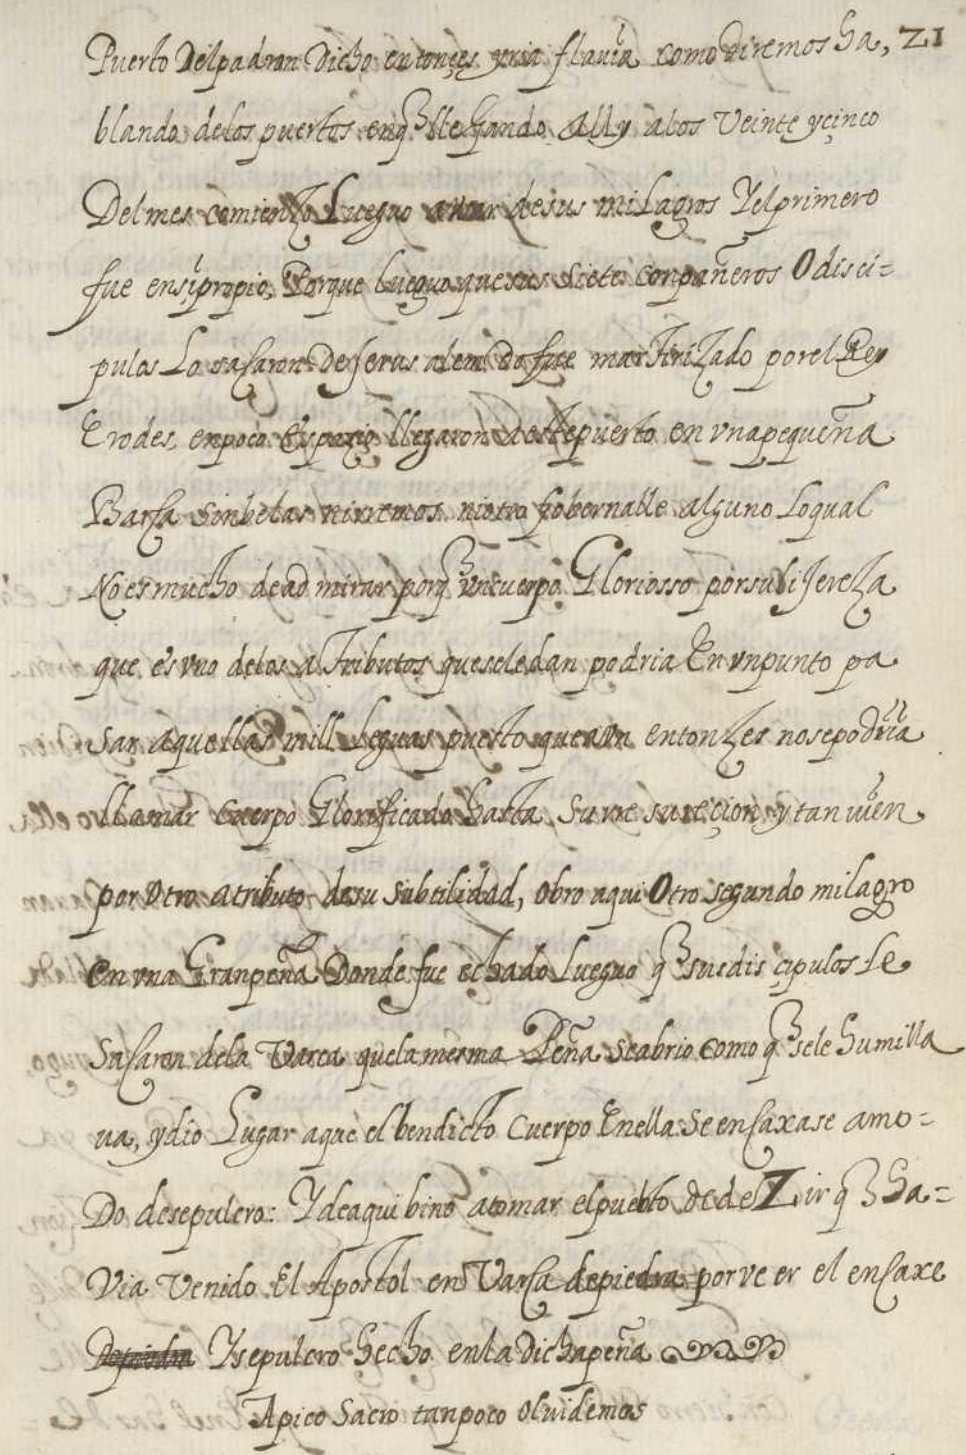 Puerto Delpadron Dicho entonçes yria flavia como diremos ha, 21
blando delos puertos enq̃ llegando Ally alos Veinte yçinco
Del mes comienzo Lueguo a usar desus miLagros Yelprimero
fue ensipropio, Porque Lueguo quesus Siete conpañeros O disci=
pulos Lo sacaron DeJerusalem do fue marTirizado porel Rey
Erodes, enpoco Espazio llegaron a estepuerto en vnapequeña
Barca sinbelas niremos niotro gobernalle alguno Loqual
No es mucho de admirar porq̃ vncuerpo Gloriosso porsuliJereza
que es vno delos aTributos queseledan podria En vnpunto pa
sar aquellas mill Leguas puesto queaun entonzes nosepodria
llamar Cuerpo Glorificado hasta Su rresureçion, ytanvien
por Otro atributo desu subtilidad, obro aqui Otro segundo milagro
en vna Granpeña Donde fue echado Lueguo q̃ susdisçipulos Le
Sacaron dela Varca quelamesma Peña seabrio como q̃ sele humilla
va, ydio Lugar aque el bendicto Cuerpo Enella se encaxase amo=
Do desepulcro: Ydeaqui bino atomar elpueblo dedeZir q̃ ha=
Via Venido El AposTol en Varca depiedra porveer el encaxe
Ysepulcro hecho enla Dichapeña
Apico Sacro tanpoco olvidemos